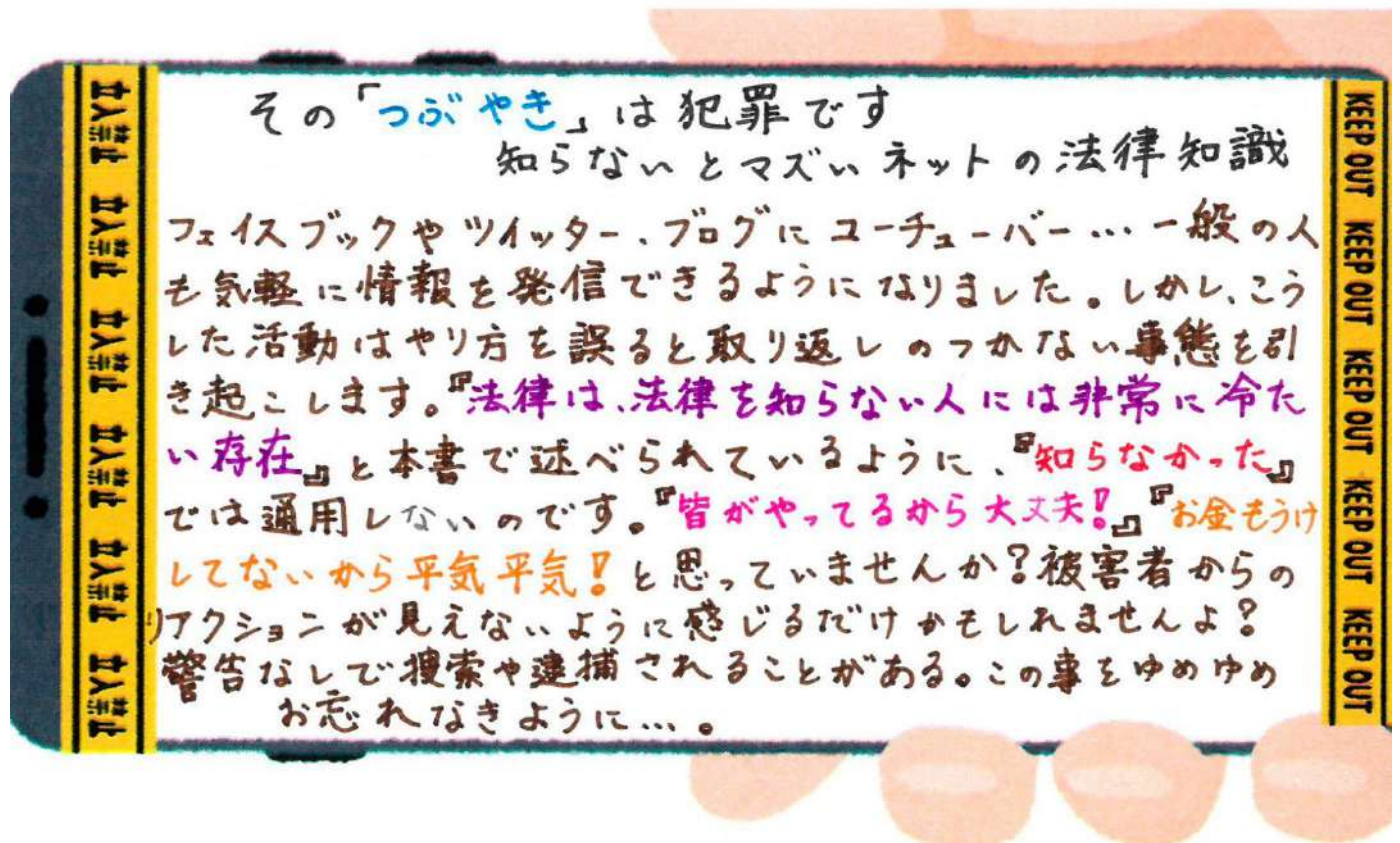 立入禁止 立入禁止 立入禁止 立入禁止 立入禁止 立入禁止
その「つぶやき」は犯罪です
知らないとマズいネットの法律知識
フェイスブックやツイッター、ブログにユーチューバー…一般の人
も気軽に情報を発信できるようになりました。しかし、こう
した活動はやり方を誤ると取り返しのつかない事態を引
き起こします。『法律は、法律を知らない人には非常に冷た
い存在』と本書で述べられているように、『知らなかった』
では通用しないのです。『皆がやってるから大丈夫!』『お金もうけ
してないから平気平気!と思っていませんか?被害者からの
リアクションが見えないように感じるだけかもしれませんよ?
警告なしで捜索や逮捕されることがある。この事をゆめゆめ
お忘れなきように…。
KEEP OUT KEEP OUT KEEP OUT KEEP OUT KEEP OUT